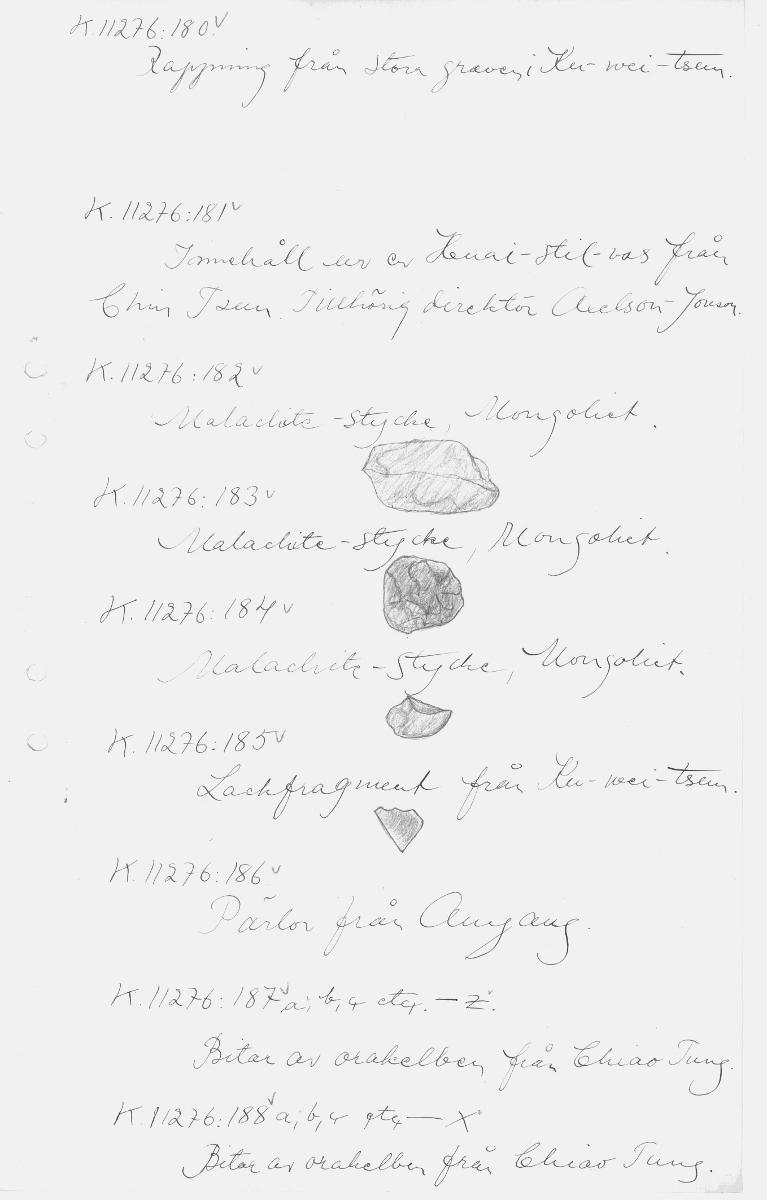 K.11276:180 v
Rappning från stora graven i Ku-wei-tsun.
K.11276:181 v
Innehåll ur en Huai-stil-vas från
Chin Tsun. Tillhörig direktör Axelson-Jonson.
K.11276:182 v
Malachite-stycke, Mongoliet.
K.11276:183 v
Malachite-stycke, Mongoliet.
K.11276:184 v
Malachite-stycke, Mongoliet.
K.11276:185 v
Lackfragment från Ku-wei-tsun.
K.11276:186 v
Pärlor från Anyang.
K.11276:187 v a, b, c etc. — z.
Bitar av orakelben från Chiao Tung.
K.11276:188 v a, b, c etc — x
Bitar av orakelben från Chiao Tung.